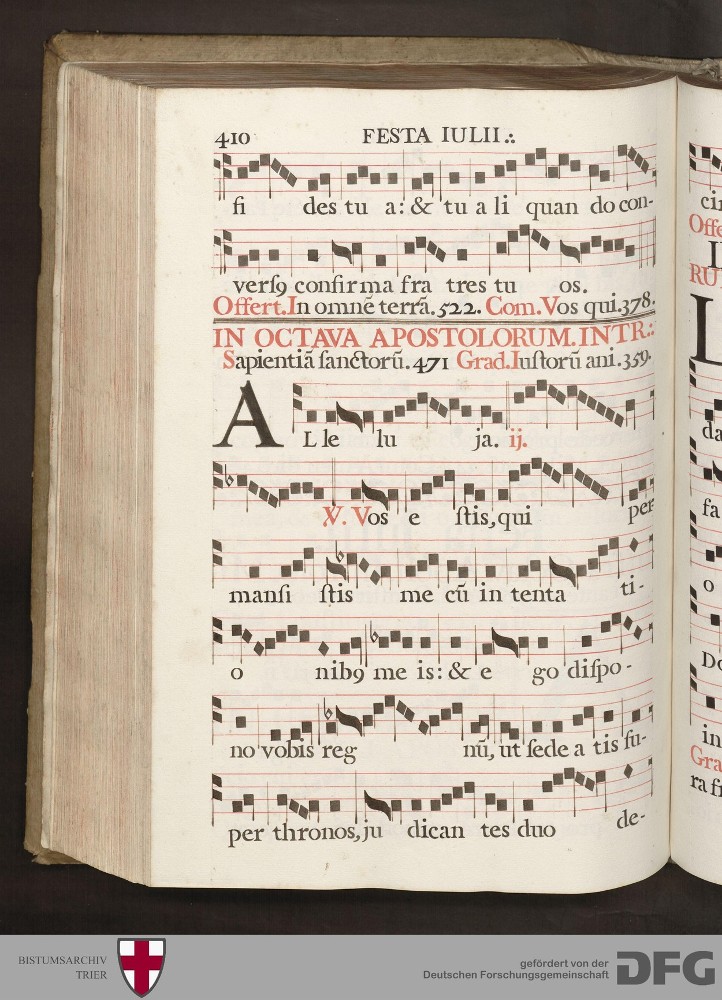 410 FESTA IULII.:.
fi des tu a: & tu a li quan do con-
versꝯ confirma fra tres tu os.
Offert. In omnē terrā. 522. Com. Vos qui. 378.
IN OCTAVA APOSTOLORUM. INTR.:
Sapientiā ſanctorū. 471 Grad. Iuſtorū ani. 359.
AL le lu ja. ij.
℣. Vos e ſtis, qui per-
manſi ſtis me cū in tenta ti-
o nibꝯ me is: & e go diſpo-
no vobis reg nū, ut ſede a tis ſu-
per thronos, ju dican tes duo de-
cir
Offe
I
RU
L
da
fa
o
Do
in
Gra
ra fi
BISTUMSARCHIV
TRIER
gefördert von der
Deutschen Forschungsgemeinschaft
DFG